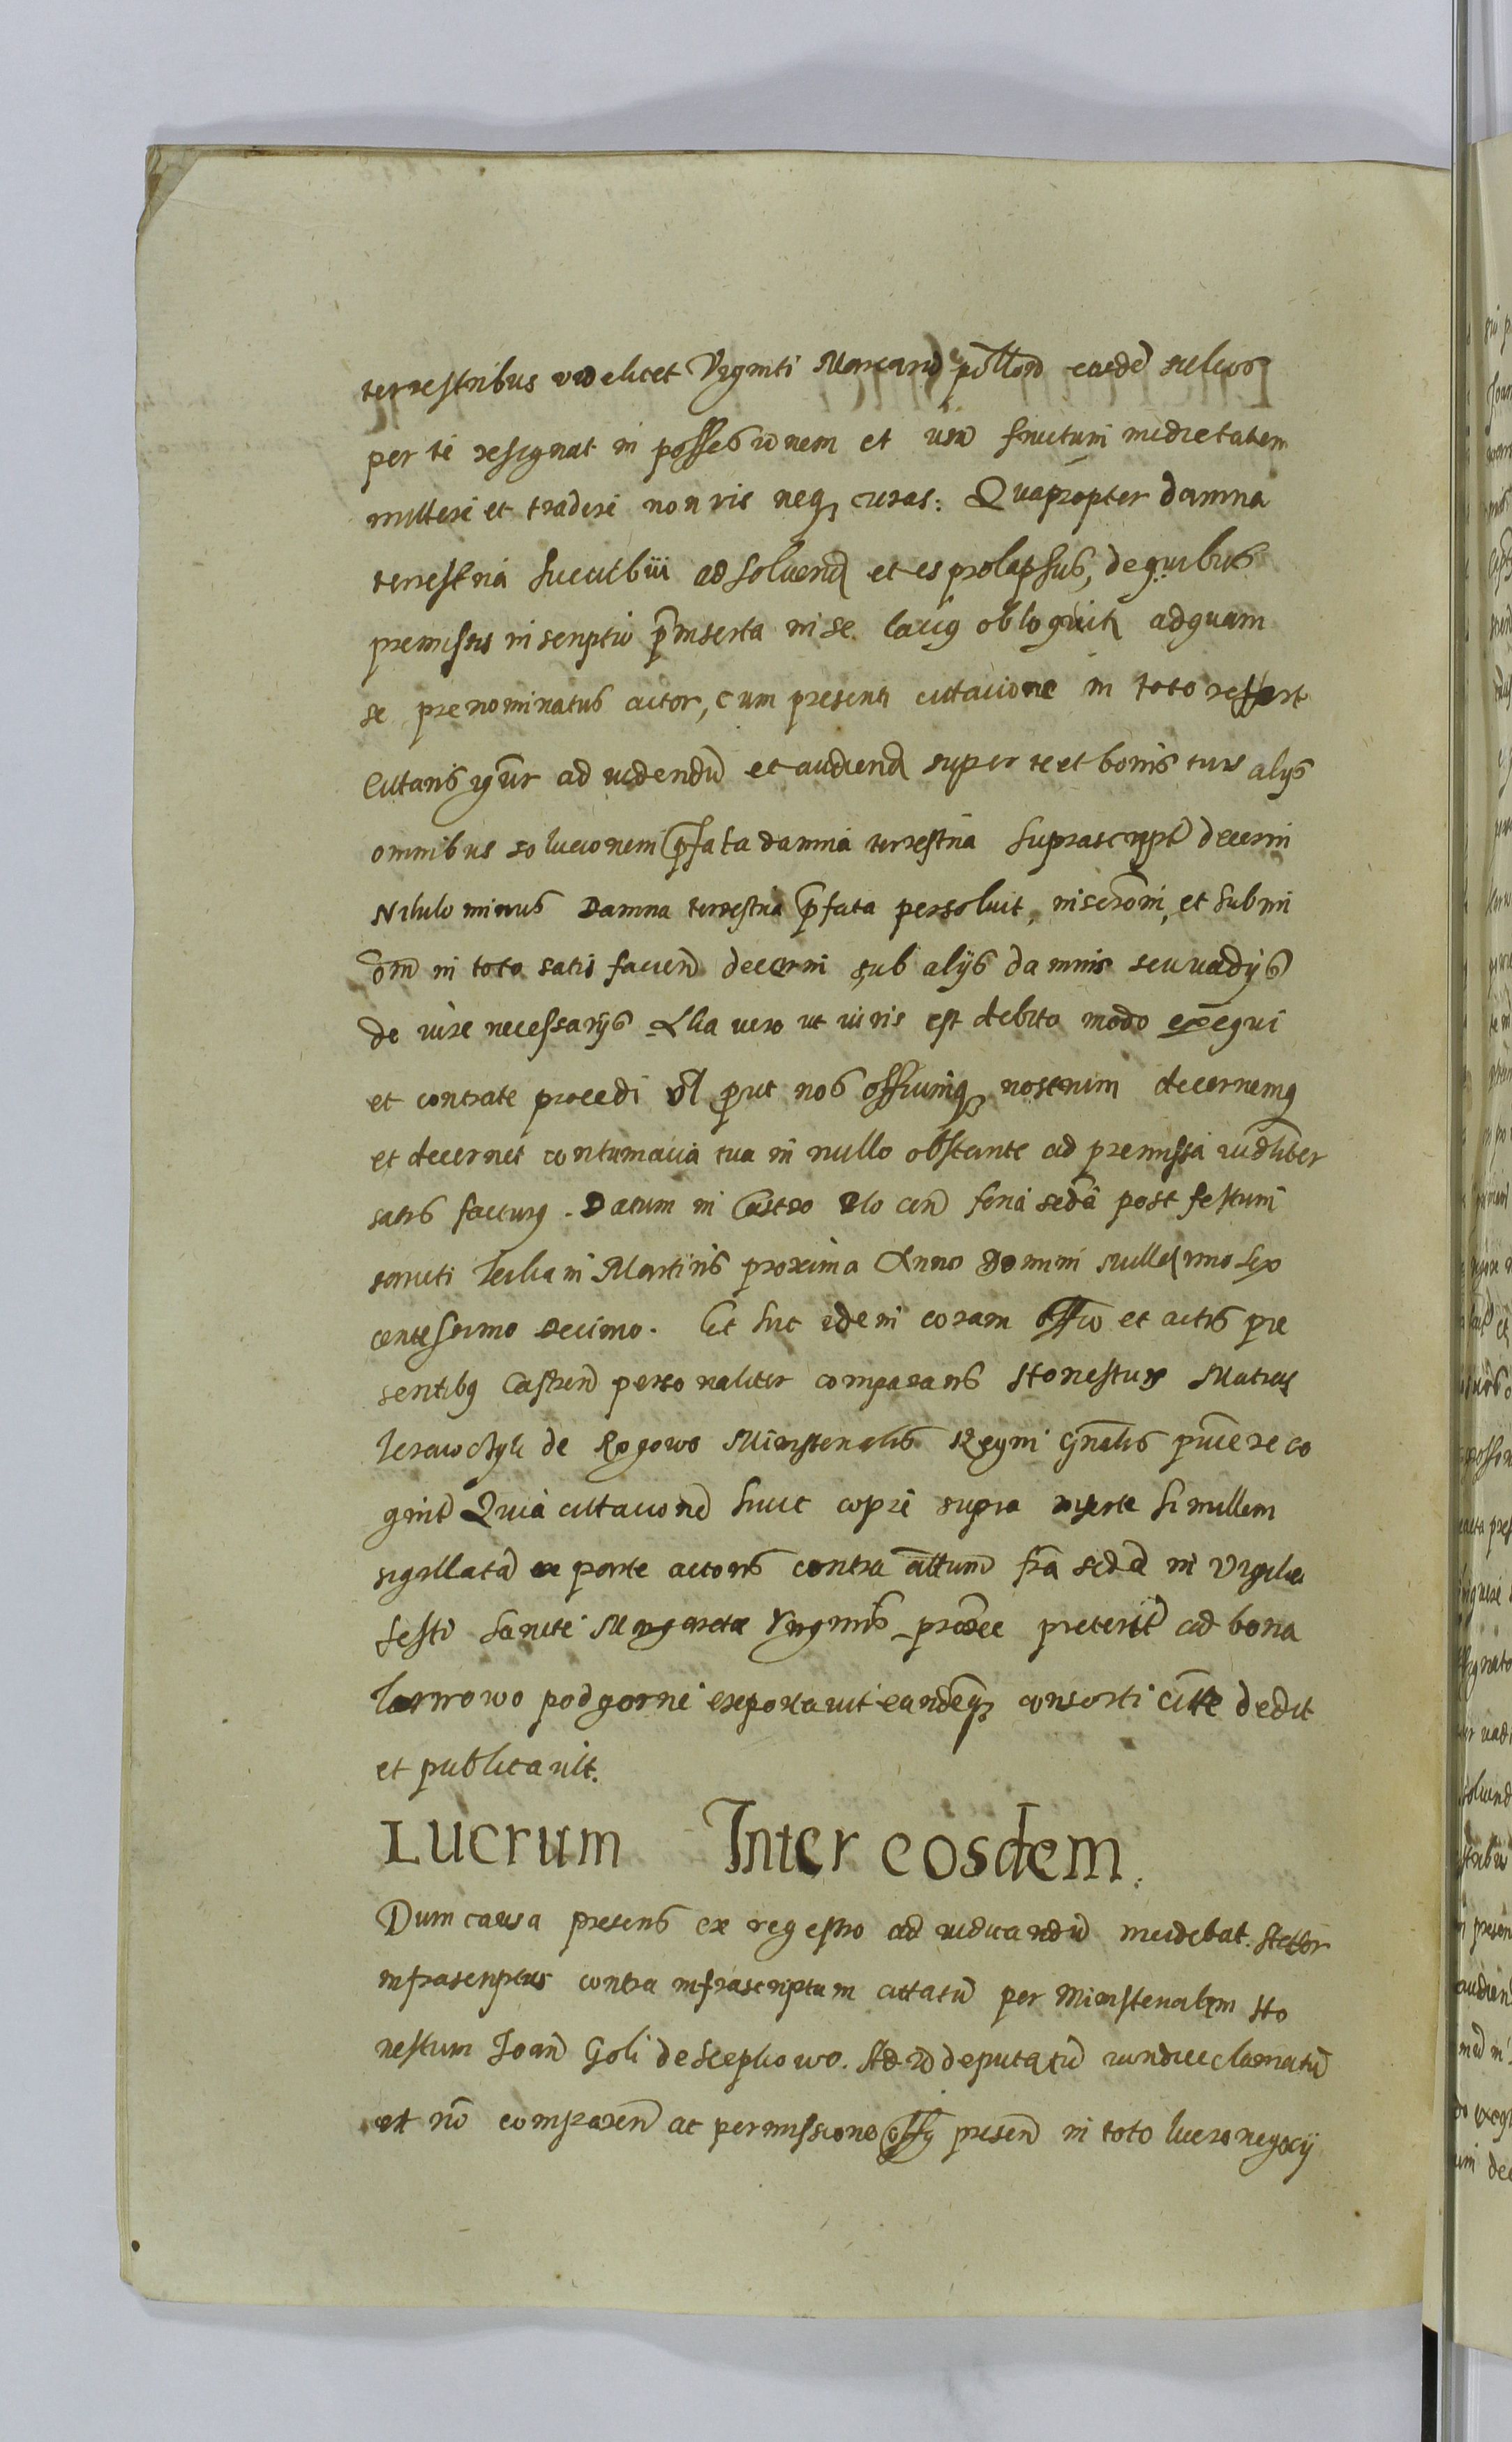 terrestribus videlicet Viginti Marcarũ pollon eadẽ
per te resignat in possessionem et usũ fructum medietatem
mittere et tradere non vis neqʒ curas: Quapropter damna
terrestria succubiu adsoluend et es prolapsus, de quibus
premissis inscriptio p̃inserta in se laciꝰ obloquitr adquam
se prenominatus actor, cum presenti cittacione in toto reffert
Cittaris igũr ad videndũ et audiend super te et bonis tuis alys
omnibus solucionem p̃fata damna terrestria suprascript decerni
Nihilominus Damna terrestria p̃fata persoluit, inscrõni, et submi
õni in toto satis faciend decerni sub alijs damnis seu vadijs
de iure necessarijs Alia vero ut iuris est debito modo exequi
et contra te procedi vl prut nos officiumqʒ nostrum decernemꝰ
et decernet contumacia tua in nullo obstante ad premissa iudliter
satis facturꝰ. Datum in Castro Plocen feria secda post festum
sancti Iuliani Martiris proxima Anno Domini millesimo sex
centesimo decimo. Et huc idem coram offio et actis pre
sentibꝰ Castren personaliter comparans Honestus Matias
de Rogowo Ministerialis Regni Gnalis pnice reco
gnit Quia cittacione huic copie supra inserte simillem
sigillatã ex parte actoris contra cittatum fria secda in Vigilia
festi sancte Margarete Virginis proxee preterit ad bona
podgorne exportauit eandemqʒ consorti citte dedit
et publicauit.
Lucrum Inter eosdem.
Dum causa presens ex regestro ad iudicandũ incidebat. Actor
infrascriptus contra infrascriptum cittatũ per Ministerialem Ho
nestum Joan Goli de Sceptowo. Ad id deputatũ iundice clamatũ
et nõ comparen ac permissione offy presen in toto lucro negocij